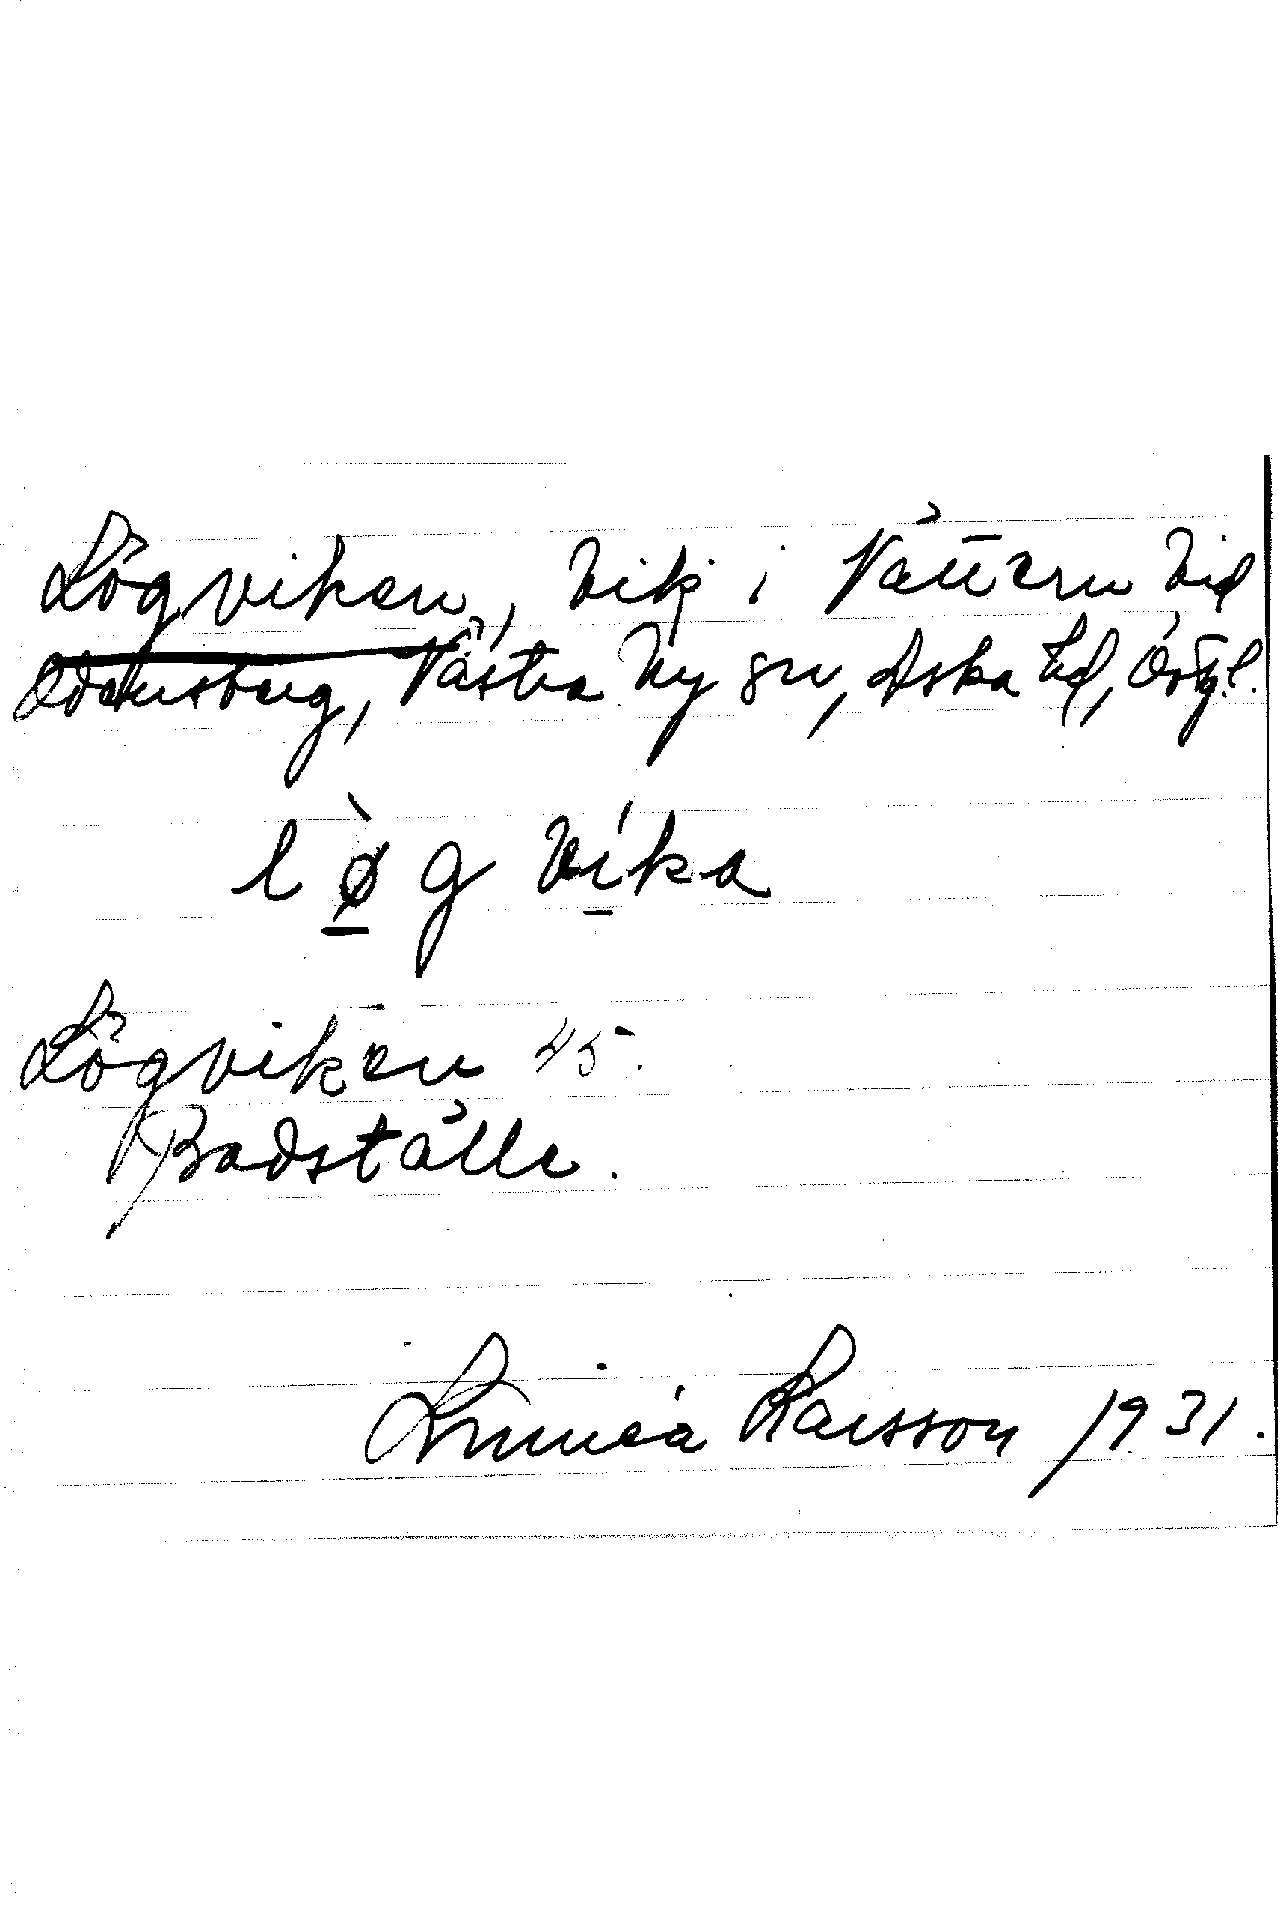 Lögviken, vik i Vättern vid
Odensberg, Västra Ny sn, Aska hd, Östgl.
lø̀gvíka
Lögviken 45.
Badställe.
Linnéa Larsson 1931.